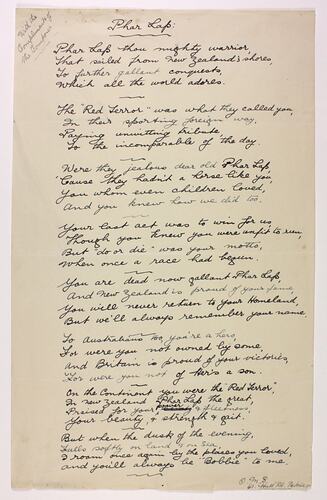 With the
Compliments of
the Composer
Phar Lap:
Phar Lap thou mighty warrior,
That sailed from New Zealand's shores,
To further gallant conquests,
Which all the world adores.
The "Red Terror" was what they called you,
In their sporting foreign way,
Paying unwitting tribute,
To the incomparable of the day.
Were they jealous dear old Phar Lap,
'Cause they hadn't a horse like you,
You whom even children loved,
And you knew how we did too.
Your last act was to win for us
Though you knew you were unfit to run,
But "do or die" was your motto,
When once a race had begun.
You are dead now gallant Phar Lap,
And New Zealand is proud of your fame,
You will never return to your Homeland,
But we'll always remember your name.
To Australians too, you're a hero,
For were you not owned by some,
And Britain is proud of your victories,
For were you not of Her's a son.
On the Continent you were the "Red Terror",
In New Zealand Phar Lap the great,
Praised for your power & fleetness,
Your beauty, & strength & gait.
But when the dusk of the evening,
Falls softly on land & on Sea,
I roam once again by the places you loved,
and you'll always be "Bobbie" to me.
Hutt Rd. Petone